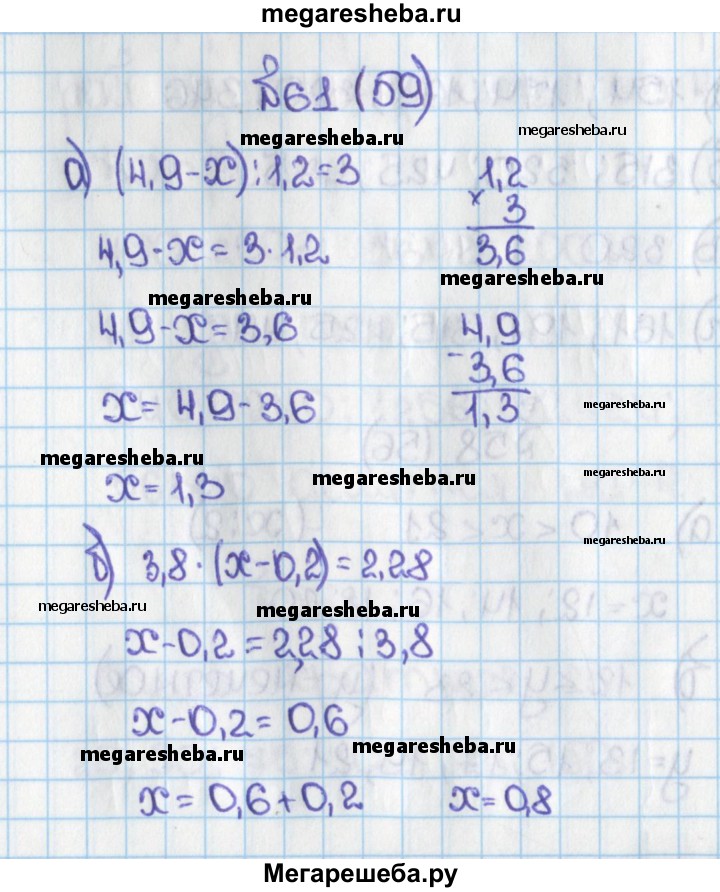 megaresheba.ru
№61 (59)
megaresheba.ru
megaresheba.ru
а) (4,9-x):1,2=3
1,2
× 3
4,9-x=3·1,2
3,6
megaresheba.ru
megaresheba.ru
4,9-x=3,6
4,9
- 3,6
x=4,9-3,6
1,3
megaresheba.ru
megaresheba.ru
megaresheba.ru
megaresheba.ru
x=1,3
megaresheba.ru
б) 3,8·(x-0,2)=2,28
megaresheba.ru
megaresheba.ru
x-0,2=2,28:3,8
x-0,2=0,6
megaresheba.ru
megaresheba.ru
x=0,6+0,2 x=0,8
megaresheba.ru
megaresheba.ru
Мегарешеба.ру